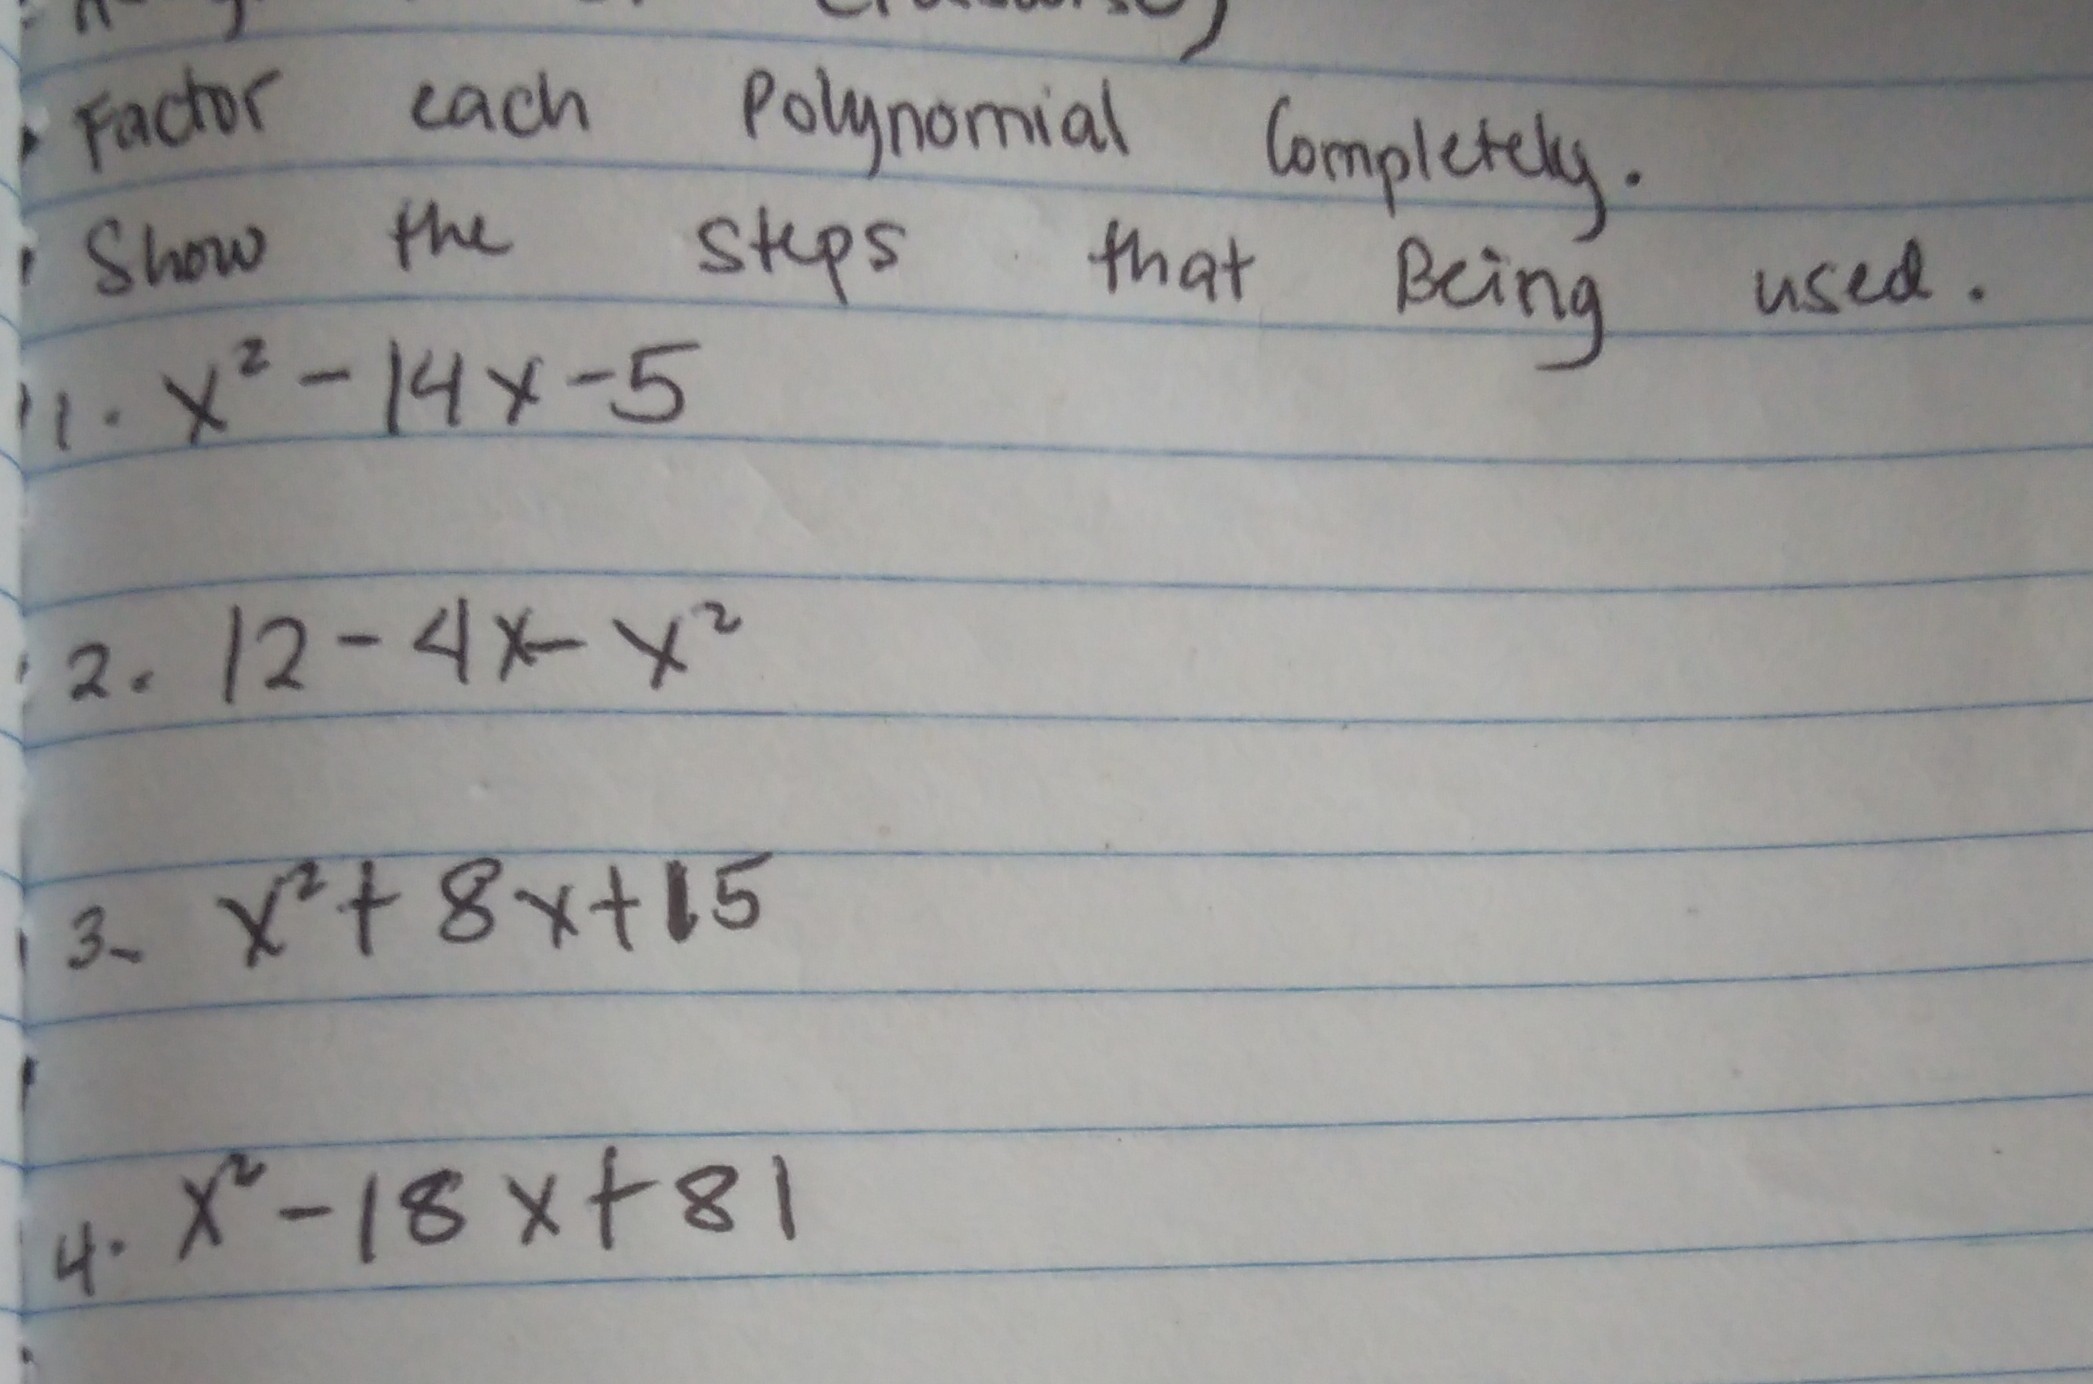 Factor each Polynomial Completely.
Show the steps that Being used.
1. x² - 14x - 5
2. 12 - 4x - x²
3. x² + 8x + 15
4. x² - 18x + 81